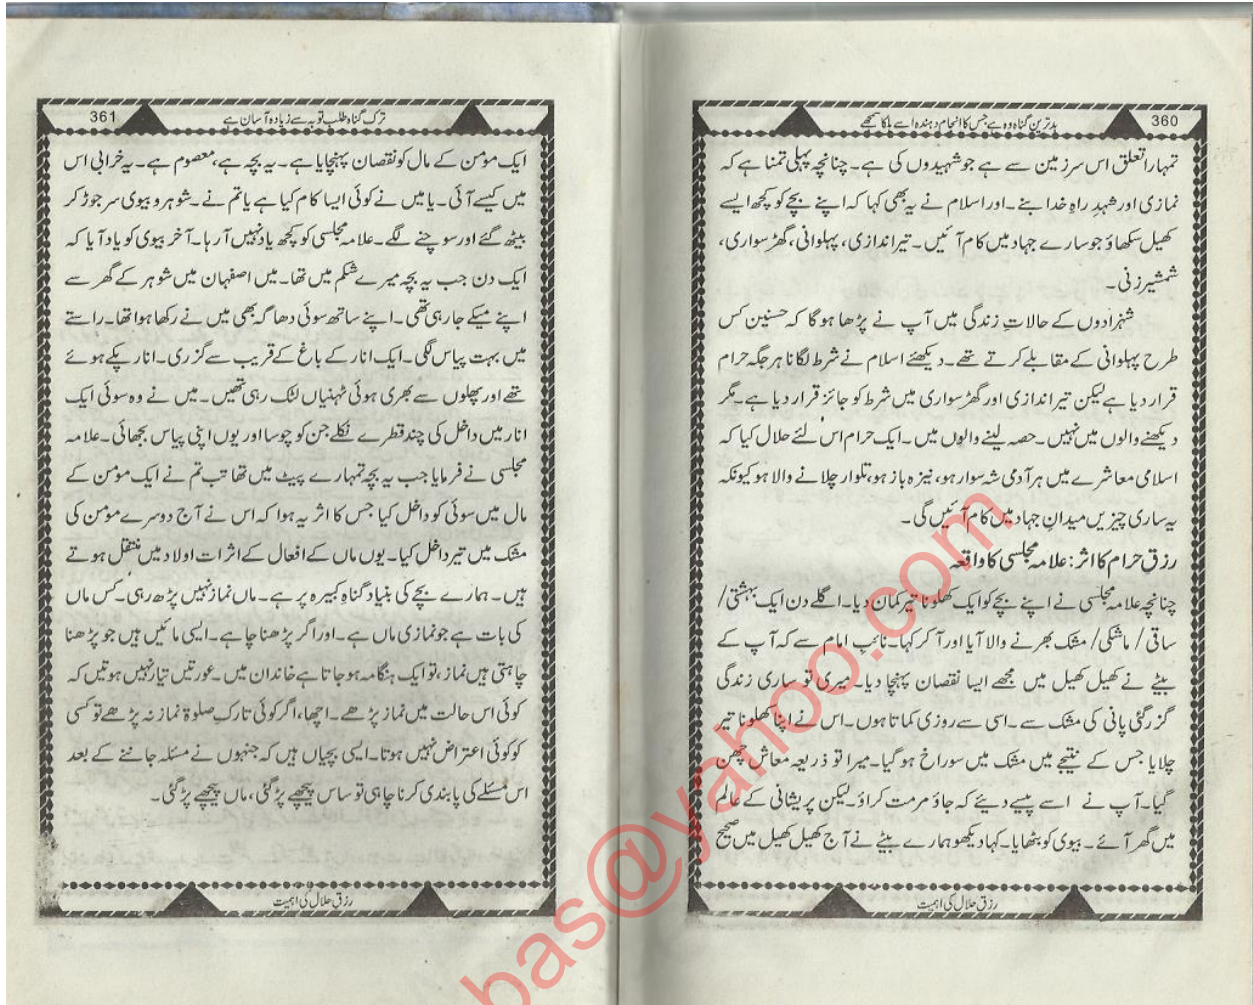 360
بدترین گناہ وہ ہے جس کا انجام دہندہ اسے ہلکا سمجھے
تمہارا تعلق اس سرزمین سے ہے جو شہیدوں کی ہے۔ چنانچہ پہلی تمنا ہے کہ
نمازی اور شہدِ راہِ خدا بنے۔ اور اسلام نے یہ بھی کہا کہ اپنے بچے کو کچھ ایسے
کھیل سکھاؤ جو سارے جہاد میں کام آئیں۔ تیر اندازی، پہلوانی، گھڑ سواری،
شمشیر زنی۔
شہزادوں کے حالاتِ زندگی میں آپ نے پڑھا ہوگا کہ حسنین کس
طرح پہلوانی کے مقابلے کرتے تھے۔ دیکھئے اسلام نے شرط لگانا ہر جگہ حرام
قرار دیا ہے لیکن تیر اندازی اور گھڑ سواری میں شرط کو جائز قرار دیا ہے۔ مگر
دیکھنے والوں میں نہیں۔ حصہ لینے والوں میں۔ ایک حرام اس لئے حلال کیا کہ
اسلامی معاشرے میں ہر آدمی شہ سوار ہو، نیزہ باز ہو، تلوار چلانے والا ہو کیونکہ
یہ ساری چیزیں میدانِ جہاد میں کام آئیں گی۔
رزقِ حرام کا اثر: علامہ مجلسی کا واقعہ
چنانچہ علامہ مجلسی نے اپنے بچے کو ایک کھلونا تیر کمان دیا۔ اگلے دن ایک بہشتی/
ساقی/ ماشکی/ مشک بھرنے والا آیا اور آ کر کہا۔ نائب امام سے کہ آپ کے
بیٹے نے کھیل کھیل میں مجھے ایسا نقصان پہنچا دیا۔ میری تو ساری زندگی
گزر گئی پانی کی مشک سے۔ اسی سے روزی کماتا ہوں۔ اس نے اپنا کھلونا تیر
چلایا جس کے نتیجے میں مشک میں سوراخ ہو گیا۔ میرا تو ذریعہ معاش چھن
گیا۔ آپ نے اسے پیسے دیئے کہ جاؤ مرمت کراؤ۔ لیکن پریشانی کے عالم
میں گھر آئے۔ بیوی کو بٹھایا۔ کہا دیکھو ہمارے بیٹے نے آج کھیل کھیل میں صحیح
رزق حلال کی اہمیت
361
ترک گناہ طلب توبہ سے زیادہ آسان ہے
ایک مؤمن کے مال کو نقصان پہنچایا ہے۔ یہ بچہ ہے، معصوم ہے۔ یہ خرابی اس
میں کیسے آئی۔ یا میں نے کوئی ایسا کام کیا ہے یا تم نے۔ شوہر و بیوی سر جوڑ کر
بیٹھ گئے اور سوچنے لگے۔ علامہ مجلسی کو کچھ یاد نہیں آ رہا۔ آخر بیوی کو یاد آیا کہ
ایک دن جب یہ بچہ میرے شکم میں تھا۔ میں اصفہان میں شوہر کے گھر سے
اپنے میکے جا رہی تھی۔ اپنے ساتھ سوئی دھاگہ بھی میں نے رکھا ہوا تھا۔ راستے
میں بہت پیاس لگی۔ ایک انار کے باغ کے قریب سے گزری۔ انار پکے ہوئے
تھے اور پھلوں سے بھری ہوئی ٹہنیاں لٹک رہی تھیں۔ میں نے وہ سوئی ایک
انار میں داخل کی چند قطرے نکلے جن کو چوسا اور یوں اپنی پیاس بجھائی۔ علامہ
مجلسی نے فرمایا جب یہ بچہ تمہارے پیٹ میں تھا تب تم نے ایک مومن کے
مال میں سوئی کو داخل کیا جس کا اثر یہ ہوا کہ اس نے آج دوسرے مومن کی
مشک میں تیر داخل کیا۔ یوں ماں کے افعال کے اثرات اولاد میں منتقل ہوتے
ہیں۔ ہمارے بچے کی بنیاد گناہ کبیرہ پر ہے۔ ماں نماز نہیں پڑھ رہی۔ کس ماں
کی بات ہے جو نمازی ماں ہے۔ اور اگر پڑھنا چاہے۔ ایسی مائیں ہیں جو پڑھنا
چاہتی ہیں نماز، تو ایک ہنگامہ ہو جاتا ہے خاندان میں۔ عورتیں تیار نہیں ہوتیں کہ
کوئی اس حالت میں نماز پڑھے۔ اچھا، اگر کوئی تارکِ صلوۃ نماز نہ پڑھے تو کسی
کو کوئی اعتراض نہیں ہوتا۔ ایسی بچیاں ہیں کہ جنہوں نے مسئلہ جاننے کے بعد
اس مسئلے کی پابندی کرنا چاہی تو ساس پیچھے پڑ گئی، ماں پیچھے پڑ گئی۔
رزق حلال کی اہمیت
bas@yahoo.com